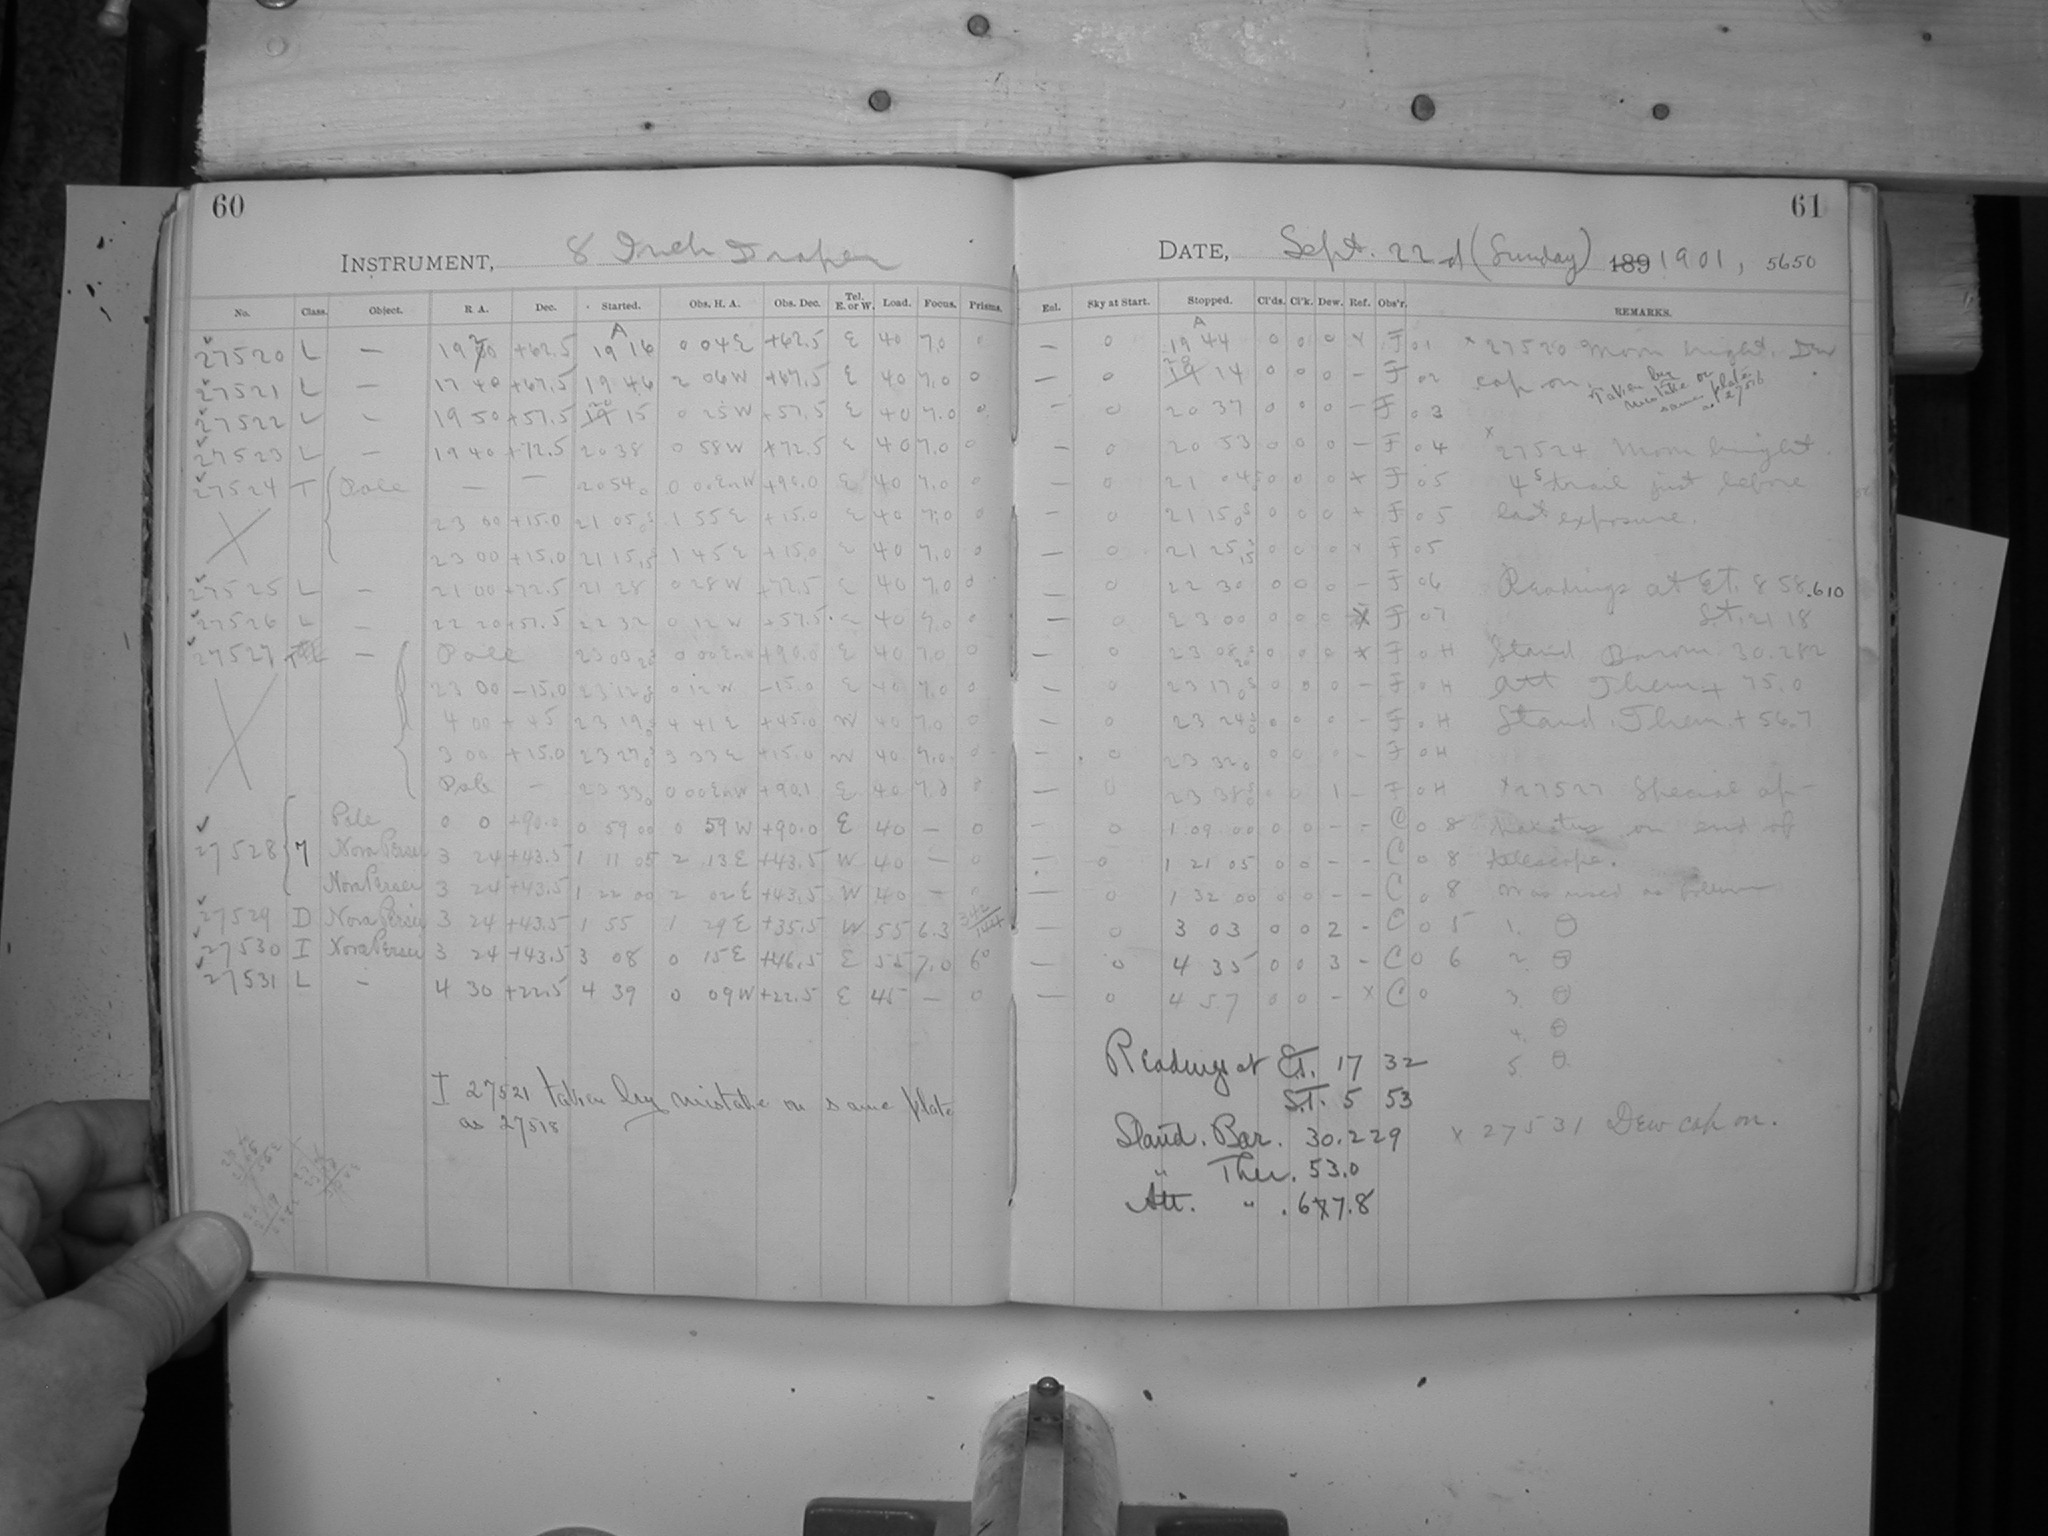 60
INSTRUMENT, 8 Inch Draper
No. Class. Object. R A. Dec. Started. Obs. H. A. Obs. Dec. Tel. E. or W. Load. Focus. Prisms.
A
27520 L — 19 20 +62.5 19 16 0 04 E +62.5 E 40 7.0 0
27521 L — 17 40 +67.5 19 46 2 06 W +67.5 E 40 7.0 0
27522 L — 19 50 +57.5 20 15 0 25 W +57.5 E 40 7.0 0
27523 L — 19 40 +72.5 20 38 0 58 W +72.5 E 40 7.0 0
27524 T Pole — — 20 54 0 0 00 E n W +90.0 E 40 7.0 0
23 00 +15.0 21 05 1 55 E +15.0 E 40 7.0 0
23 00 +15.0 21 15 1 45 E +15.0 E 40 7.0 0
27525 L — 21 00 +72.5 21 28 0 28 W +72.5 E 40 7.0 0
27526 L — 22 20 +57.5 22 32 0 12 W +57.5 E 40 7.0 0
27527 — Pole 23 00 0 00 E n W +90.0 E 40 7.0 0
23 00 −15.0 23 12 0 12 W −15.0 E 40 7.0 0
4 00 +45 23 19 4 41 E +45.0 W 40 7.0 0
3 00 +15.0 23 27 3 33 E +15.0 W 40 7.0 0
Pole — 23 33 0 0 00 E n W +90.1 E 40 7.0 0
Pole 0 0 +90.0 0 59 00 0 59 W +90.0 E 40 — 0
27528 Nova Persei 3 24 +43.5 1 11 05 2 13 E +43.5 W 40 — 0
Nova Persei 3 24 +43.5 1 22 00 2 02 E +43.5 W 40 — 0
27529 D Nova Persei 3 24 +43.5 1 55 1 29 E +35.5 W 55 6.3
27530 I Nova Persei 3 24 +43.5 3 08 0 15 E +46.5 E 55 7.0 6°
27531 L — 4 30 +22.5 4 39 0 09 W +22.5 E 45 — 0
I 27521 taken by mistake on same plate
as 27518
61
DATE, Sept. 22d (Sunday) 189 1901, 5650
Eol. Sky at Start. Stopped. Cl'ds. Cl'k. Dew. Ref. Obs'r. REMARKS.
A
— 0 19 44 0 0 0 x F 01 x 27520 Moon bright. Dew
— 0 20 14 0 0 0 – F 02 cap on. Taken by mistake on same plate as
— 0 20 37 0 0 0 – F 03
— 0 20 53 0 0 0 – F 04 x 27524 Moon bright.
— 0 21 04 0 0 0 x F 05 4s trail just before
— 0 21 15 0 0 0 x F 05 last exposure.
— 0 21 25 0 0 0 x F 05
— 0 22 30 0 0 0 – F 06 Readings at E.T. 8 58 .610
— 0 23 00 0 0 0 F 07 S.T. 21 18
— 0 23 08 0 0 0 x F 0H Stand Barom 30.282
— 0 23 17 0 0 0 – F 0H Att Therm + 75.0
— 0 23 24 0 0 0 – F 0H Stand. Therm. + 56.7
— 0 23 32 0 0 0 0 – F 0H
0 23 38 0 0 1 – F 0H x 27527 Special ap-
0 1 09 00 0 0 – – C 0 8 paratus on end of
— 0 1 21 05 0 0 – – C 0 8 telescope.
— 0 1 32 00 0 0 – – C 0 8 was used as follows
— 0 3 03 0 0 2 – C 0 5 1.
— 0 4 35 0 0 3 – C 0 6 2.
— 0 4 57 0 0 – x C 0 3.
4.
5.
Readings at E.T. 17 32
S.T. 5 53
Stand. Bar. 30.229
" Ther. 53.0
Att. " 67.8
x 27531 Dew cap on.